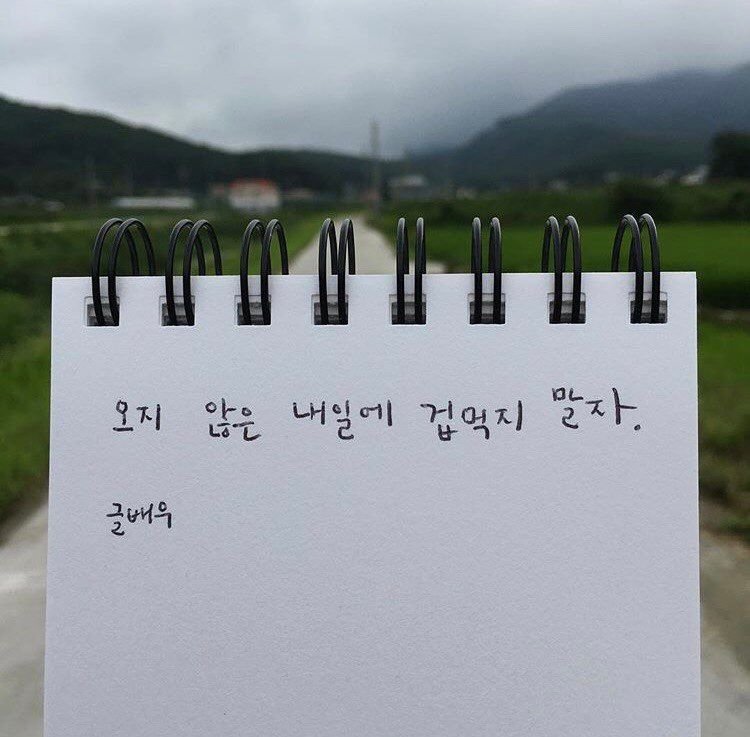 오지 않은 내일에 겁먹지 말자.
글배우